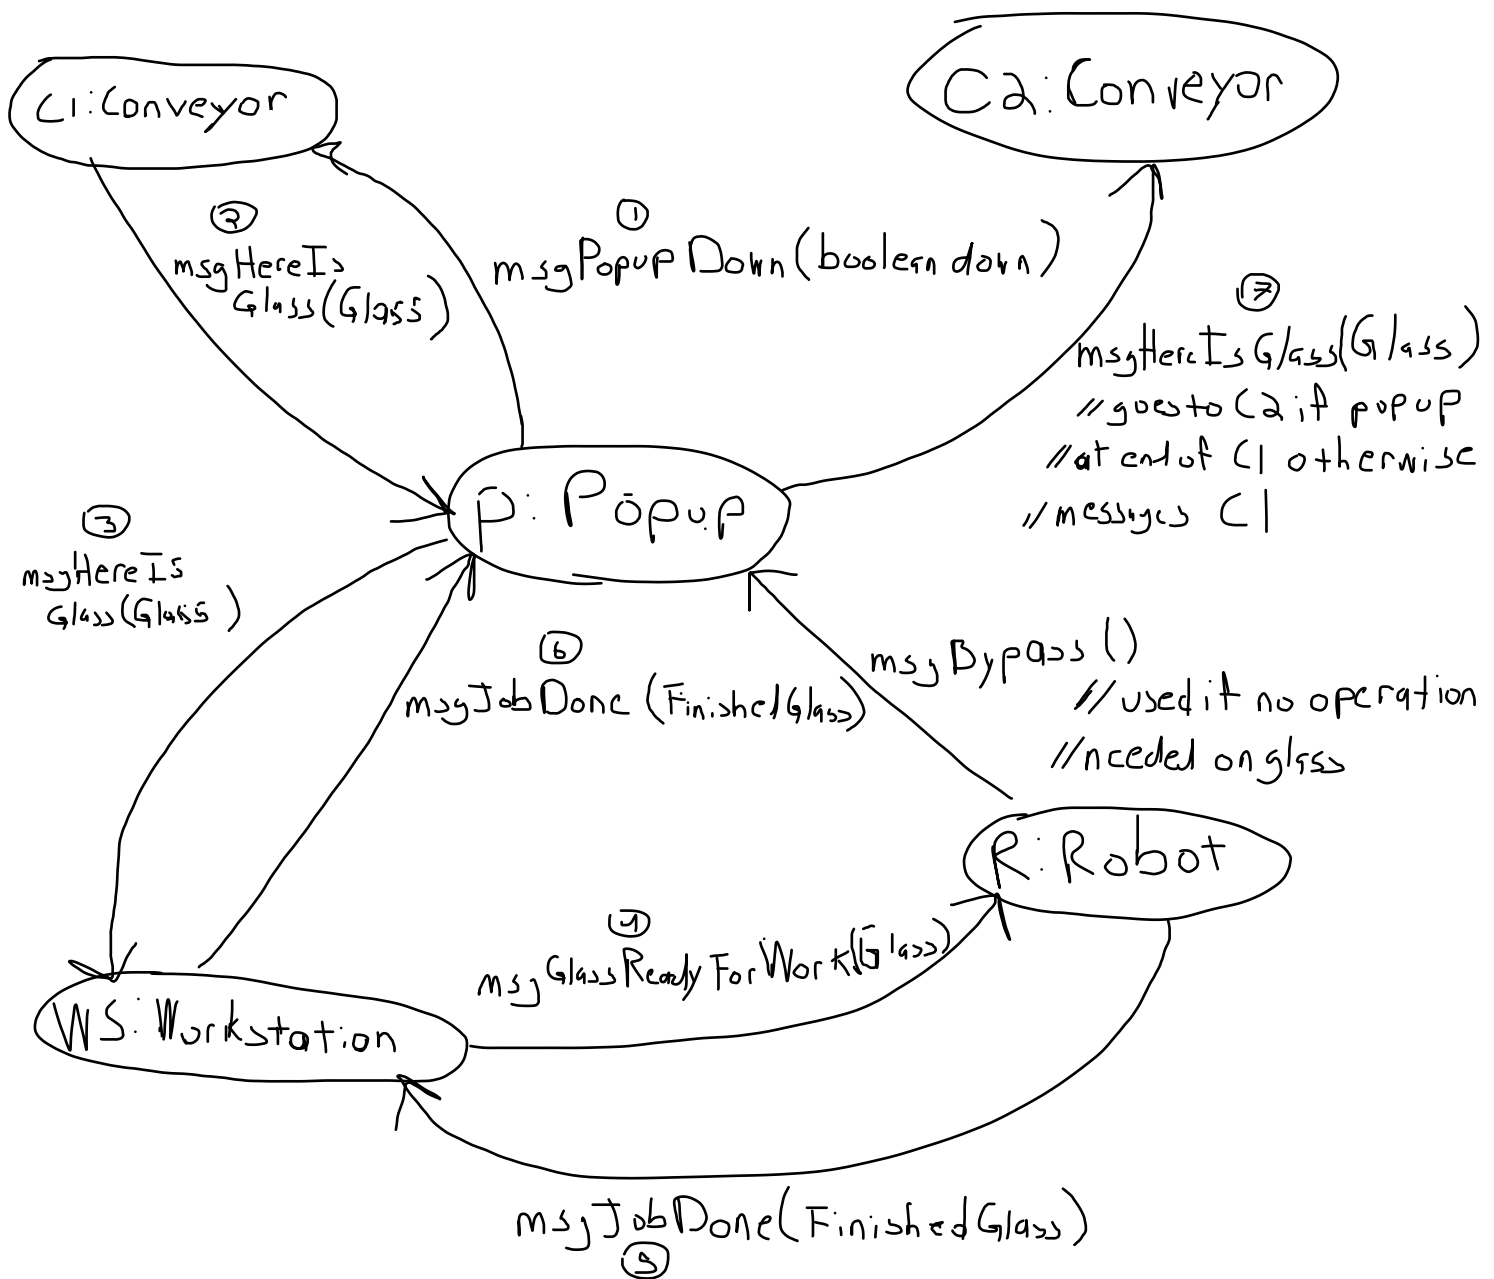 C1:Conveyor
C2:Conveyor
2
msgHereIs
Glass(Glass)
1
msgPopupDown(boolean down)
7
msgHereIsGlass(Glass)
//goes to C2 if popup
//at end of C1 otherwise
//messages C1
P:Popup
3
msgHereIs
Glass(Glass)
6
msgJobDone(FinishedGlass)
msgBypass()
//used if no operation
//needed on glass
R:Robot
4
msgGlassReadyForWork(Glass)
WS:Workstation
msgJobDone(FinishedGlass)
5